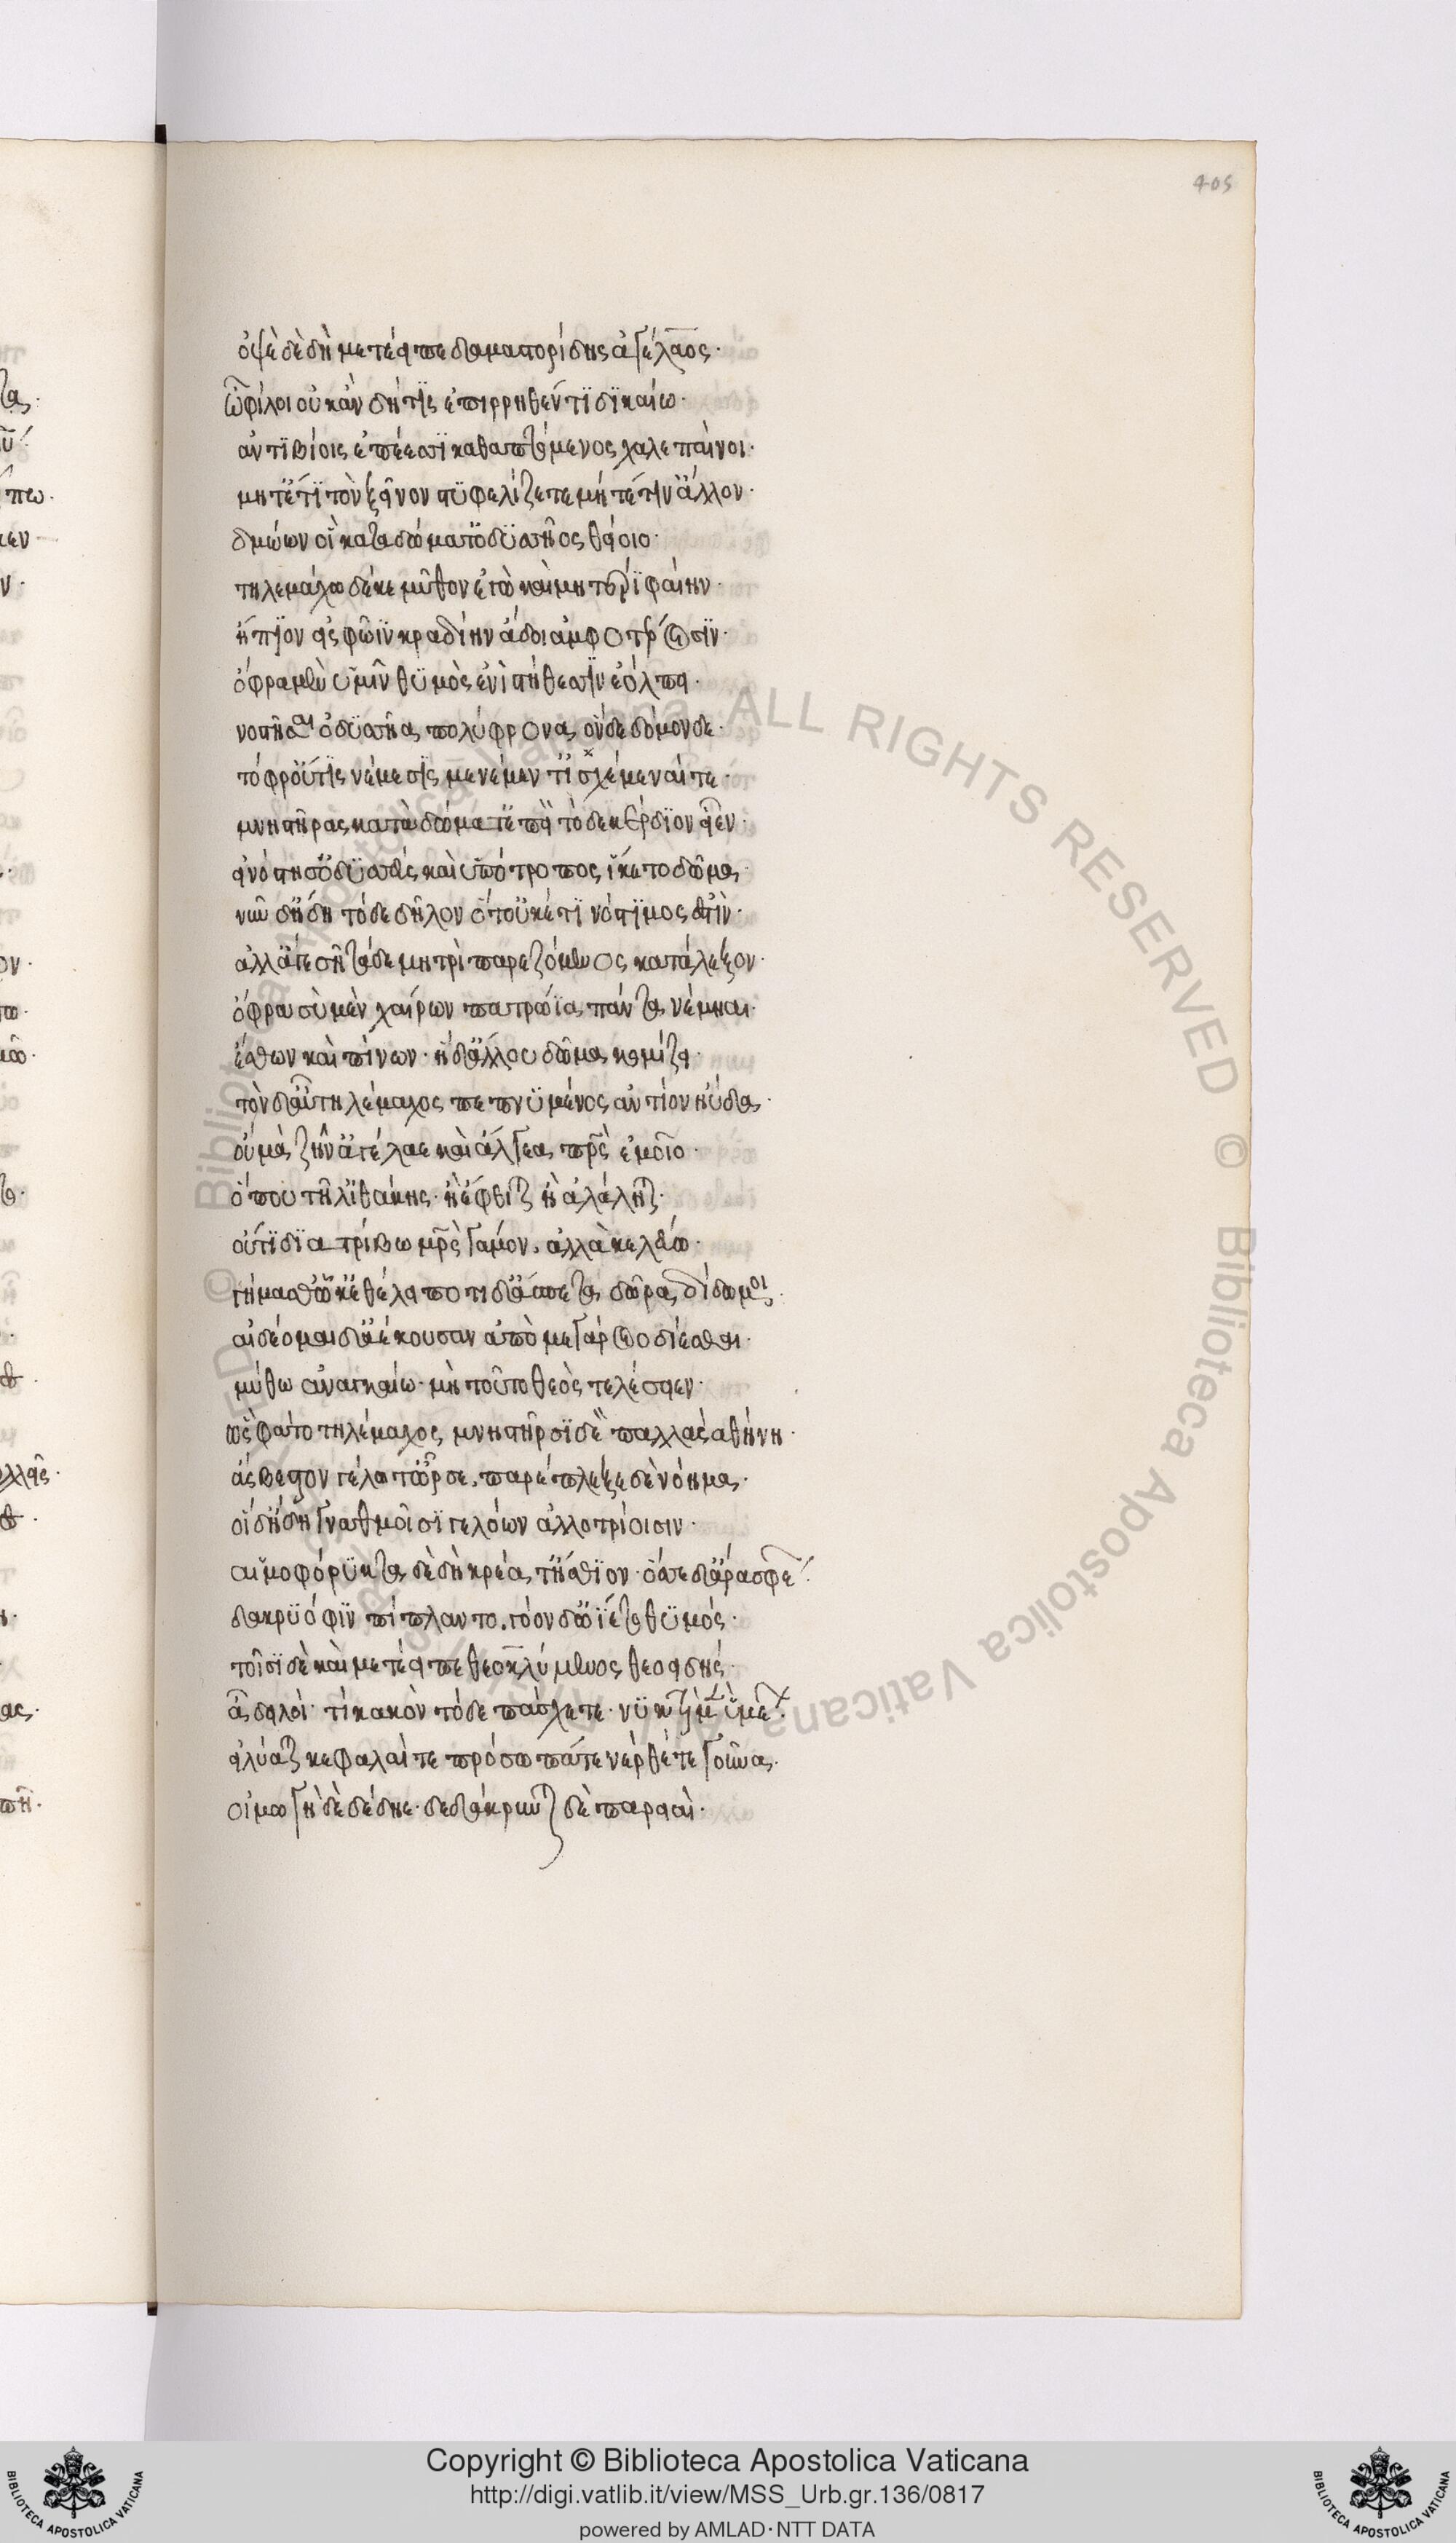 405
ὀψὲ δὲ δὴ μετέειπε δαμαστορίδης ἀγέλαος·
ὦ φίλοι οὐκ ἂν δή τις ἐπι ρρηθέντι δικαίω·
ἀντιβίοις ἐπέεσσι καθαπτόμενος χαλεπαίνοι·
μήτέ τι τὸν ξεῖνον στυφελίζετε μήτέ τιν ἄλλον·
δμώων οἳ κατα δώματ ὀδυσσῆος θείοιο·
τηλεμάχω δέ κε μῦθον ἐγὼ καὶ μητέρι φαίην·
ἤπιον εἰ σφῶϊν κραδίην ἅδοι ἀμφοτέροιϊν·
ὄφρα μὲν ὑμῖν θυμὸς ἐνὶ στήθεσσιν ἐόλπει·
νοστήσειν ὀδυσσῆα πολύφρονα ὅνδε δόμονδε·
τόφρ οὔτις νέμεσις μενέμεν τ ἦν ἰσχέμεναί τε·
μνηστῆρας κατὰ δώματ ἐπεὶ τόδε κέρδιον ἦεν·
εἰ νόστησ ὀδυσσεὺς καὶ ὑπότροπος ἵκετο δῶμα·
νῦν δ ἤδη τόδε δῆλον ὅτ οὐκέτι νόστιμος ἐστὶν·
ἀλλ ἄγε σῆ τάδε μητρὶ παρεζόμενος κατάλεξον·
ὄφρα σὺ μὲν χαίρων πατρώϊα πάντα νέμηαι·
ἔσθων καὶ πίνων· ἡ δ ἄλλου δῶμα κομίζει·
τὸν δ αὖ τηλέμαχος πεπνυμένος ἀντίον ηὔδα·
οὐ μὰ ζῆν ἀγέλαε καὶ ἄλγεα πρὸς ἐμοῖο·
ὅ που τῆλ ἰθάκης· ἢ ἔφθιται ἢ ἀλάληται·
οὔτι διατρίβω μρὸς γάμον· ἀλλὰ κελεύω·
γήμασθ ὧ κ ἐθέλει ποτὶ δ ἄσπετα δῶρα δίδωμοι·
αἰδέομαι δ ἀέκουσαν ἀπὸ μεγάροιο δίεσθαι·
μύθω ἀναγκαίω· μὴ τοῦτο θεὸς τελέσειεν·
ὣς φάτο τηλέμαχος μνηστῆρσι δὲ παλλὰς ἀθήνη·
ἄσβεστον γέλωτ ὦρσε· παρέπλεξε δὲ νόημα·
οἳ δ ἤδη γναθμοῖσι γελόιων ἀλλοτρίοισιν·
αἱμοφόρυκτα δὲ δὴ κρέα ἤσθιον· ὄσσε δ ἄρα σφέ·
δακρυόφιν πίπλαντο· γόον δ ὠΐετο θυμός·
τοῖσι δὲ καὶ μετέειπε θεοκλύμενος θεοειδής·
ἆ δειλοὶ· τί κακὸν τόδε πάσχετε· νυκτὶ μὲν ὑμέ·
εἰλύαται κεφαλαί τε πρόσωπά τε νέρθέ τε γοῦνα·
οἰμωγὴ δὲ δέδηε· δεδάκρυνται δὲ παρειαὶ·
Copyright © Biblioteca Apostolica Vaticana
http://digi.vatlib.it/view/MSS_Urb.gr.136/0817
powered by AMLAD·NTT DATA